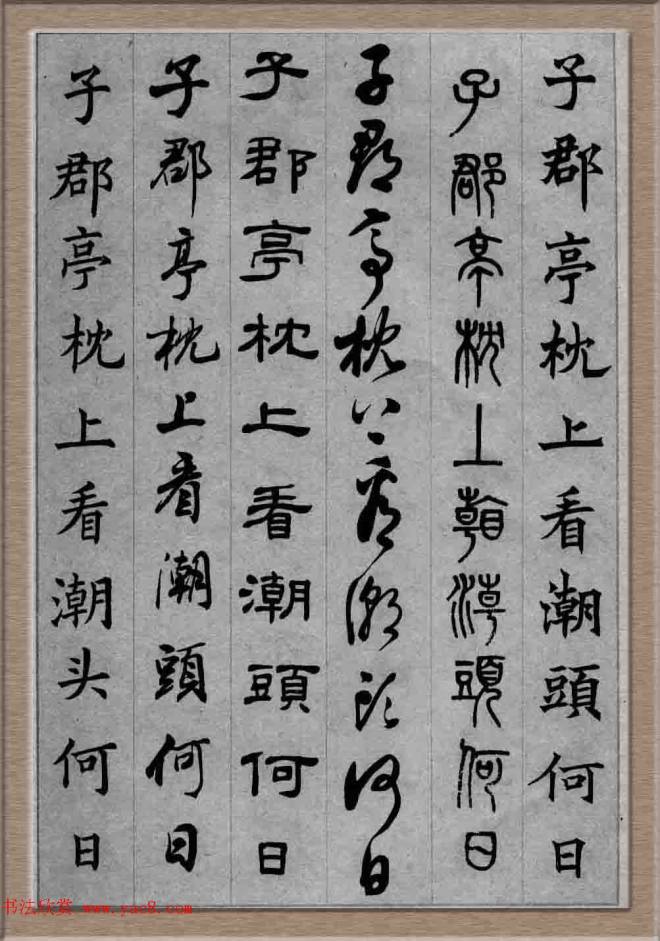 子郡亭枕上看潮頭何日
子郡亭枕上看潮頭何日
子郡亭枕上看潮頭何日
子郡亭枕上看潮頭何日
子郡亭枕上看潮頭何日
子郡亭枕上看潮头何日
书法欣赏 www.yac8.com